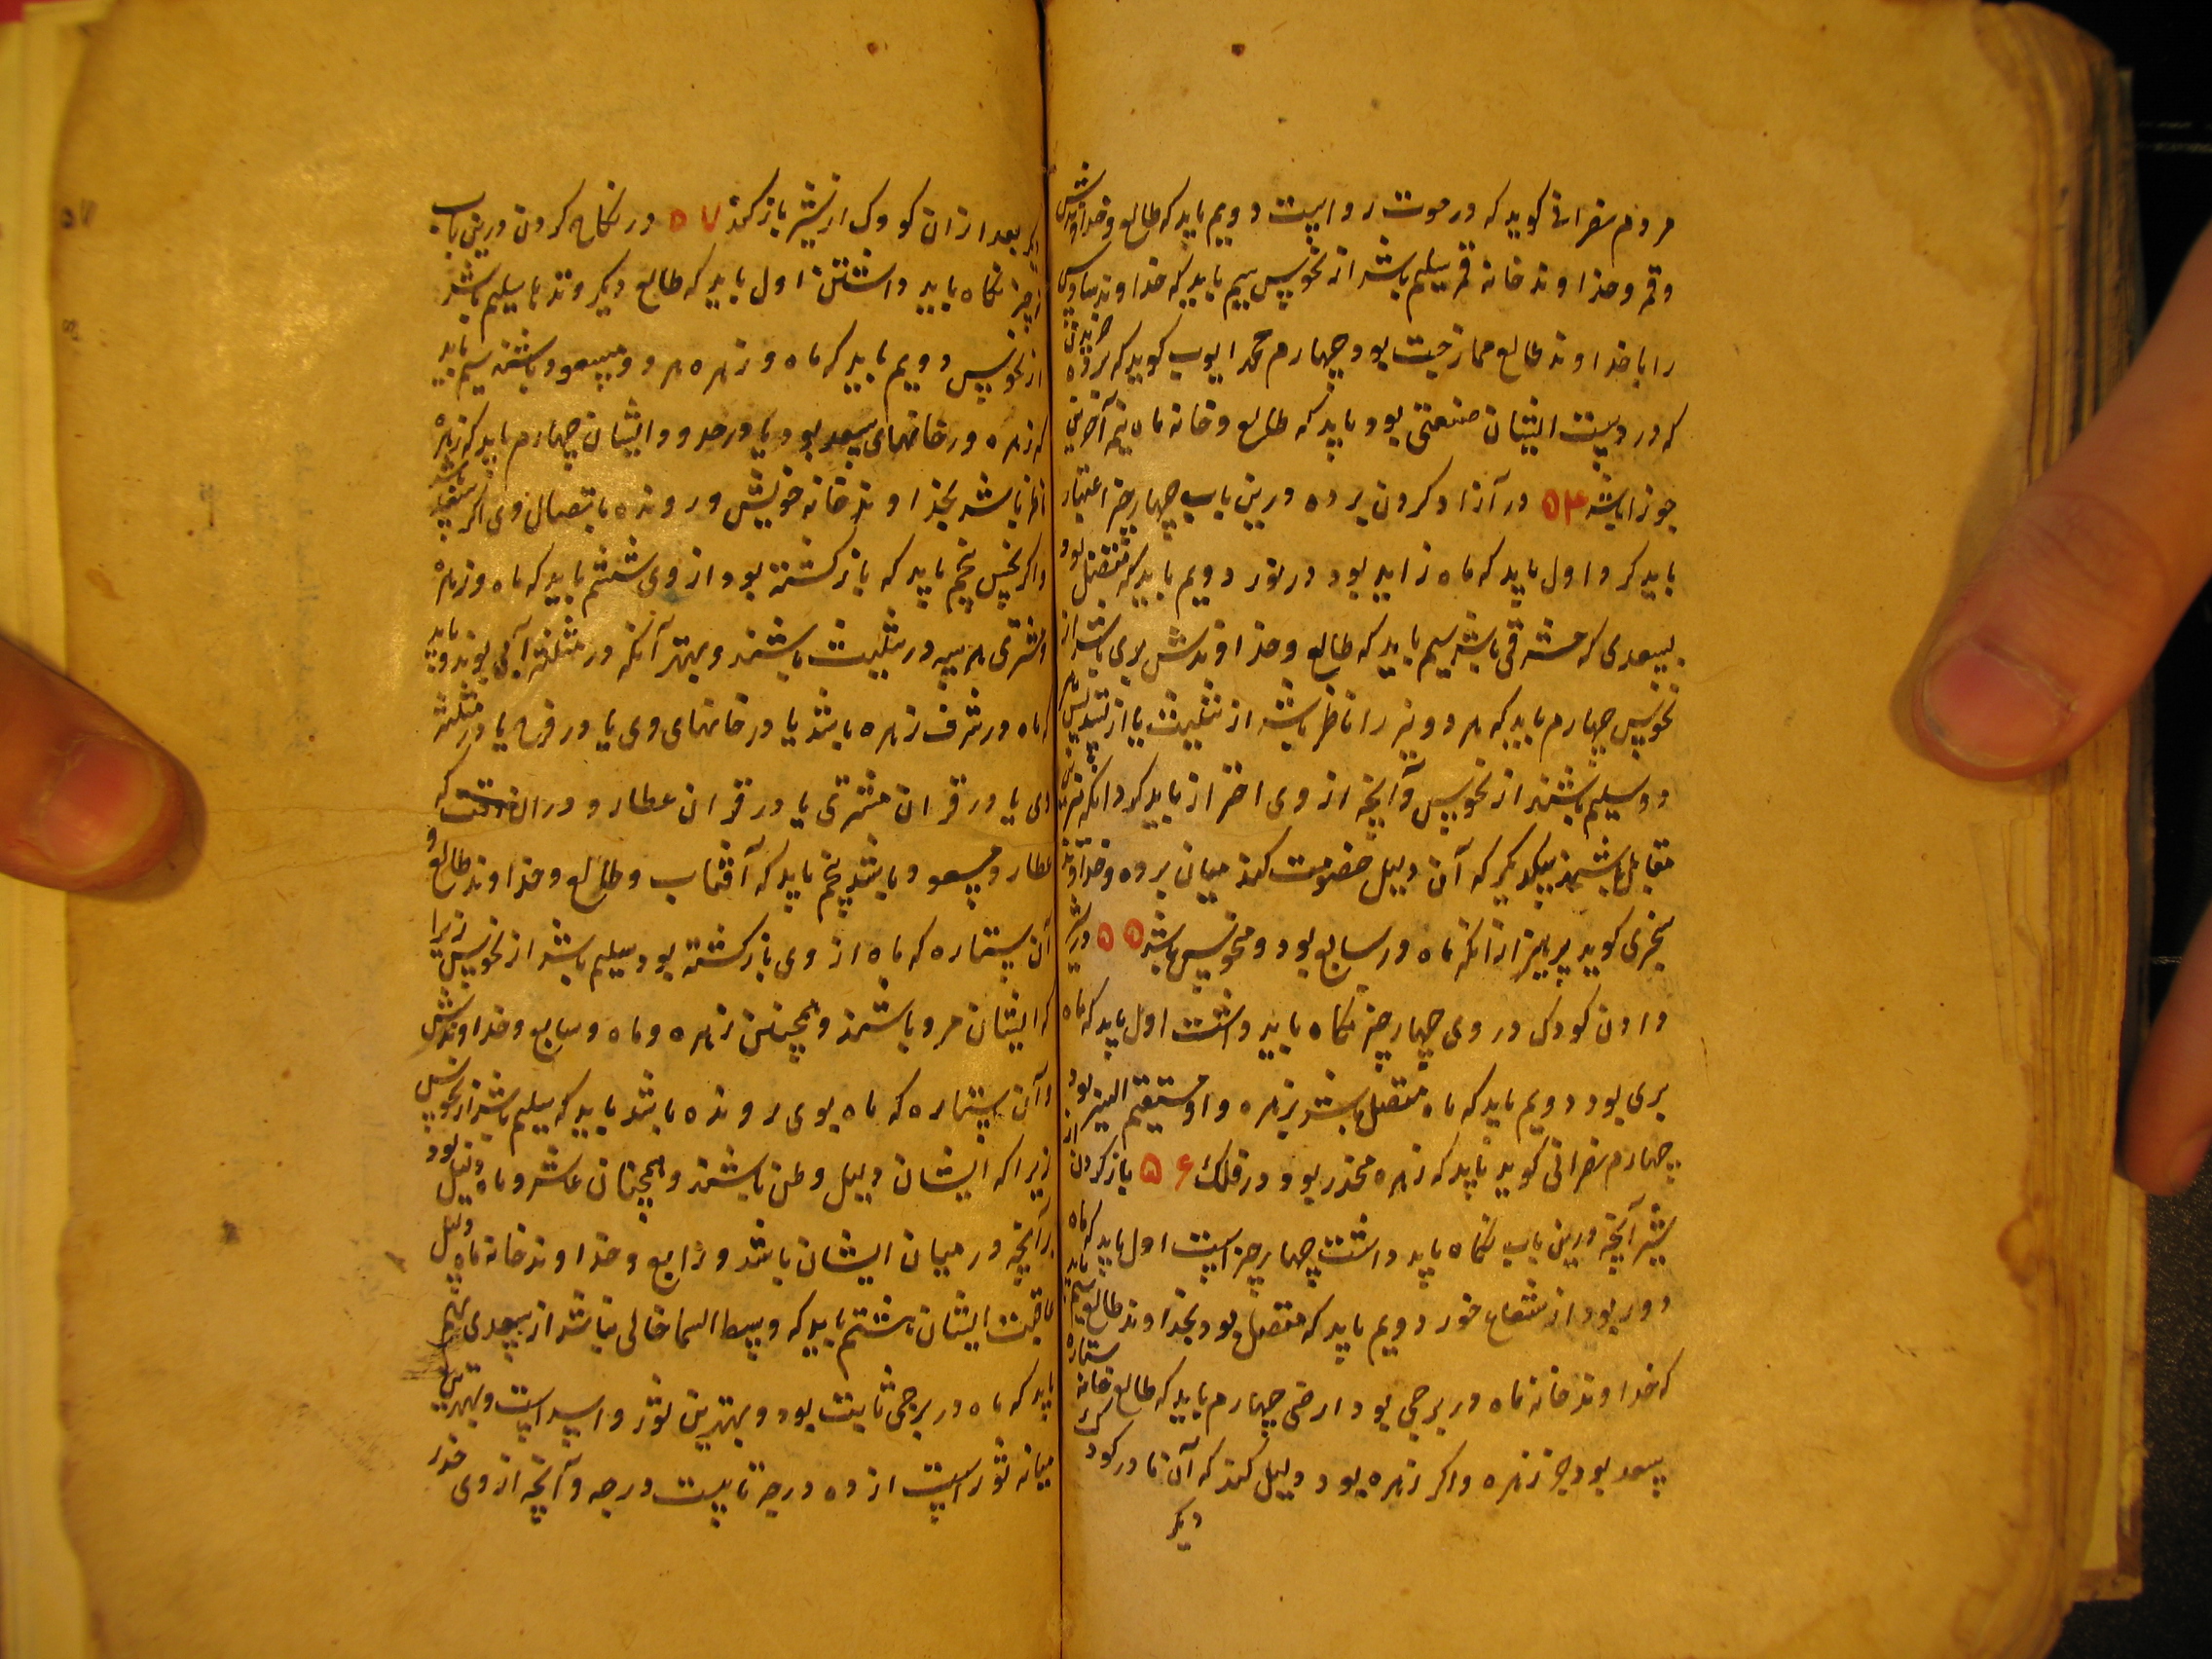 مردم نصرانی کوید که در موت رواست دویم باید که طالع و خداوندش
و قمر و خداوند خانه قمر سلیم باشد از نحوس سیم باید که خداوند سادس
را با خداوند طالع ممازجت بود چهارم محمد ایوب کوید که بروه خریدن
که در دست ایشان صنعتی بود باید که طالع و خانه ماه نیم آخرین
جوزا باشد ۵۴ در آزاد کردن برده درین باب چهار چیز اعتبار
باید کرد اول باید که ماه زاید بود در نور دویم باید که متصل بود
بسعدی که مشرقی باشد سیم باید که طالع و خداوندش بری باشد از
نحوس چهارم باید که هر دو نیر را ناظر باشد از تثلیث یا از تسدیس
و سلیم باشند از نحوس و آنچه از وی احتراز باید کرد آنکه نیرین
مقابل باشند بیکدیکر که آن دلیل خصومت کند میان برده و خداوند
سجزی کوید پرهیز از آنکه ماه در سابع بود و منحوس باشد ۵۵ در شیر
دادن کودک در وی چهار چیز نکاه باید داشت اول باید که ماه
بری بود دویم باید که ماه متصل باشد بزهره و او مستقیم السیر بود
چهارم نصرانی کوید باید که زهره منحدر بود در فلک ۵۶ باز کردن از
شیر آنچه درین باب نکاه باید داشت چهار چیز است اول باید که ماه
دور بود از شعاع خور دویم باید که متصل بود بخداوند طالع سیم باید
که خداوند خانه ماه در برجی بود ارضی چهارم باید که طالع خانه ستاره
سعد بود جز زهره و اکر زهره بود دلیل کند که آن مادر کودک
دیکر
دیکر بعد از ان کودک از شیر باز کند ۵۷ در نکاح کردن درین باب
چیز نکاه باید داشتن اول باید که طالع دیکر وتدها سلیم باشد
از نحوس دویم باید که ماه و زهره هر دو مسعود باشند سیم باید
که زهره در خانهای سعد بود یا در حدود ایشان چهارم باید که زهره
ناظر باشد بخداوند خانه خویش و رونده باتصال وی اکر سعد باشد
و اکر نحس پنجم باید که باز کشته بود از وی ششم باید که ماه و زهره
و مشتری هر سه در تثلیث باشند و بهتر آنکه در مثلثه آبی بوند و باید
که ماه در شرف زهره باشد یا در خانهای وی یا در فرح یا در مثلثه
وی یا در قران مشتری یا در قران عطارد و در ان وقت که
عطارد مسعود باشد پنجم باید که آفتاب و طالع و خداوند طالع و
آن ستاره که ماه از وی باز کشته بود سلیم باشد از نحوس زیرا
که ایشان مرد باشند و همچنین زهره و ماه و سابع و خداوندش
و آن ستاره که ماه بوی رونده باشد باید که سلیم باشد از نحوس
زیرا که ایشان دلیل وطن باشند و همچنان عاشر و ماه دلیل بود
بر آنچه در میان ایشان باشد و رابع و خداوند خانه ماه دلیل
عاقبت ایشان ششتم باید که وسط السما خالی نباشد از سعدی نهم
باید که ماه در برجی ثابت بود و بهترین ثور و اسد است و بهترین
میانه ثور است از ده درجه تا بیست درجه و آنچه از وی حذر